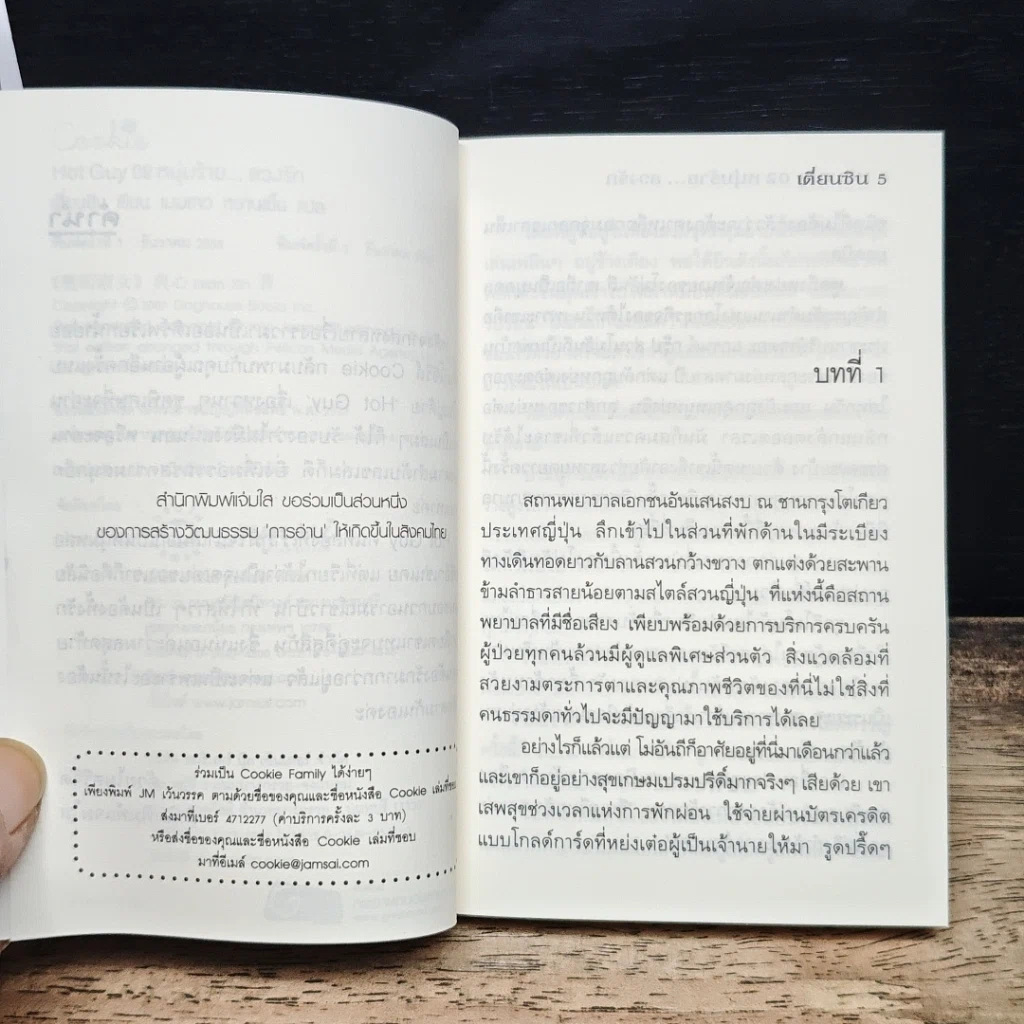 สำนักพิมพ์แจ่มใส ขอร่วมเป็นส่วนหนึ่ง
ของการสร้างวัฒนธรรม 'การอ่าน' ให้เกิดขึ้นในสังคมไทย
ร่วมเป็น Cookie Family ได้ง่ายๆ
เพียงพิมพ์ JM เว้นวรรค ตามด้วยชื่อของคุณและชื่อหนังสือ Cookie เล่มที่ชอบ
ส่งมาที่เบอร์ 4712277 (ค่าบริการครั้งละ 3 บาท)
หรือส่งชื่อของคุณและชื่อหนังสือ Cookie เล่มที่ชอบ
มาที่อีเมล์ cookie@jamsai.com
เตี่ยนซิน 5
บทที่ 1
สถานพยาบาลเอกชนอันแสนสงบ ณ ชานกรุงโตเกียว
ประเทศญี่ปุ่น ลึกเข้าไปในส่วนที่พักด้านในมีระเบียง
ทางเดินทอดยาวกับลานสวนกว้างขวาง ตกแต่งด้วยสะพาน
ข้ามลำธารสายน้อยตามสไตล์สวนญี่ปุ่น ที่แห่งนี้คือสถาน
พยาบาลที่มีชื่อเสียง เพียบพร้อมด้วยการบริการครบครัน
ผู้ป่วยทุกคนล้วนมีผู้ดูแลพิเศษส่วนตัว สิ่งแวดล้อมที่
สวยงามตระการตาและคุณภาพชีวิตของที่นี่ไม่ใช่สิ่งที่
คนธรรมดาทั่วไปจะมีปัญญามาใช้บริการได้เลย
อย่างไรก็แล้วแต่ โม่อันถีก็อาศัยอยู่ที่นี่มาเดือนกว่าแล้ว
และเขาก็อยู่อย่างสุขเกษมเปรมปรีดิ์มากจริงๆ เสียด้วย เขา
เสพสุขช่วงเวลาแห่งการพักผ่อน ใช้จ่ายผ่านบัตรเครดิต
แบบโกลด์การ์ดที่หย่งเต๋อผู้เป็นเจ้านายให้มา รูดปรื๊ดๆ